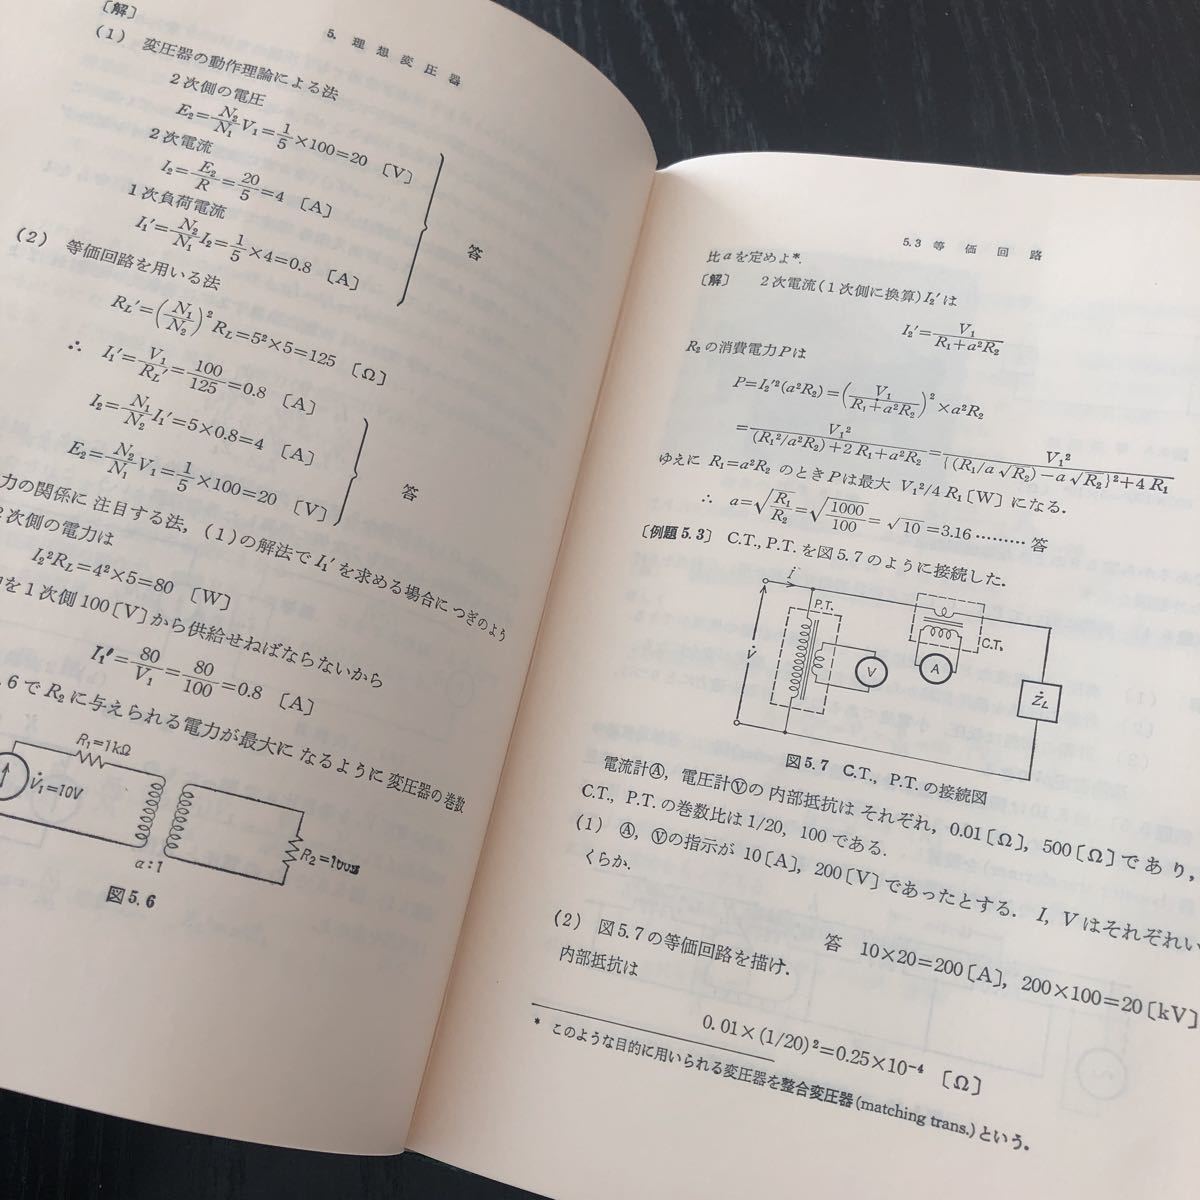 5. 理想変圧器
[解]
(1) 変圧器の動作理論による法
2次側の電圧
E₂=N₂/N₁ V₁=1/5×100=20 [V]
2次電流
I₂=E₂/R=20/5=4 [A]
1次負荷電流
I₁′=N₂/N₁ I₂=1/5×4=0.8 [A]
答
(2) 等価回路を用いる法
R_L′=(N₁/N₂)² R_L=5²×5=125 [Ω]
∴ I₁′=V₁/R_L′=100/125=0.8 [A]
I₂=N₁/N₂ I₁′=5×0.8=4 [A]
E₂=N₂/N₁ V₁=1/5×100=20 [V]
答
力の関係に注目する法,(1)の解法で I₁′を求める場合につぎのよう
2次側の電力は
I₂²R_L=4²×5=80 [W]
を1次側100[V]から供給せねばならないから
I₁′=80/V₁=80/100=0.8 [A]
.6でR₂に与えられる電力が最大になるように変圧器の巻数
R₁=1kΩ
V̇₁=10V
R₂=100Ω
a:1
図5.6
5.3 等価回路
比aを定めよ*.
[解] 2次電流(1次側に換算)I₂′は
I₂′=V₁/(R₁+a²R₂)
R₂の消費電力Pは
P=I₂′²(a²R₂)=(V₁/(R₁+a²R₂))²×a²R₂
=V₁²/((R₁²/a²R₂)+2R₁+a²R₂)=V₁²/({(R₁/a√R₂)−a√R₂}²+4R₁)
ゆえに R₁=a²R₂ のときPは最大 V₁²/4R₁[W]になる.
∴ a=√(R₁/R₂)=√(1000/100)=√10=3.16………答
[例題5.3] C.T., P.T.を図5.7のように接続した.
i
P.T.
C.T.
V̇
V
A
Ż_L
図5.7 C.T., P.T.の接続図
電流計Ⓐ,電圧計Ⓥの内部抵抗はそれぞれ,0.01[Ω],500[Ω]であり,
C.T., P.T.の巻数比は1/20, 100である.
(1) Ⓐ,Ⓥの指示が10[A],200[V]であったとする. I, Vはそれぞれい
くらか.
答 10×20=200[A], 200×100=20[kV]
(2) 図5.7の等価回路を描け.
内部抵抗は
0.01×(1/20)²=0.25×10⁻⁴ [Ω]
* このような目的に用いられる変圧器を整合変圧器(matching trans.)という.